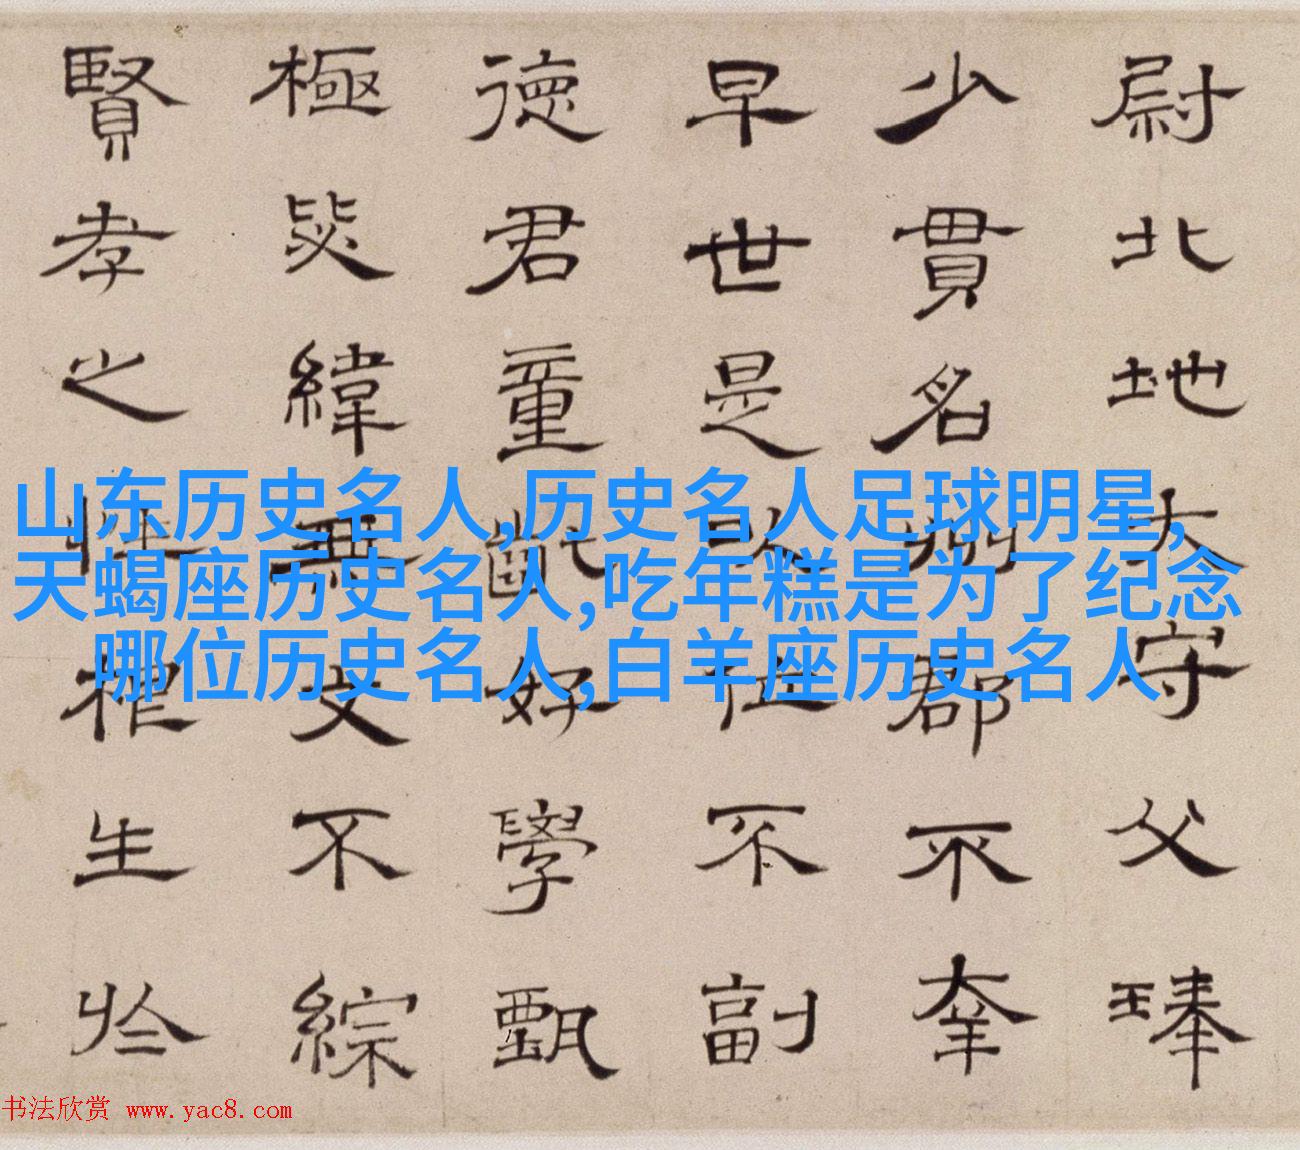 尉北地大守父琫
少貫名州郡不幸
早世是以位不副
德君童齔好學甄
極毖緯無文不綜
賢孝之性根生於
山东历史名人,历史名人足球明星,
天蝎座历史名人,吃年糕是为了纪念
哪位历史名人,白羊座历史名人
书法欣赏 www.yac8.com